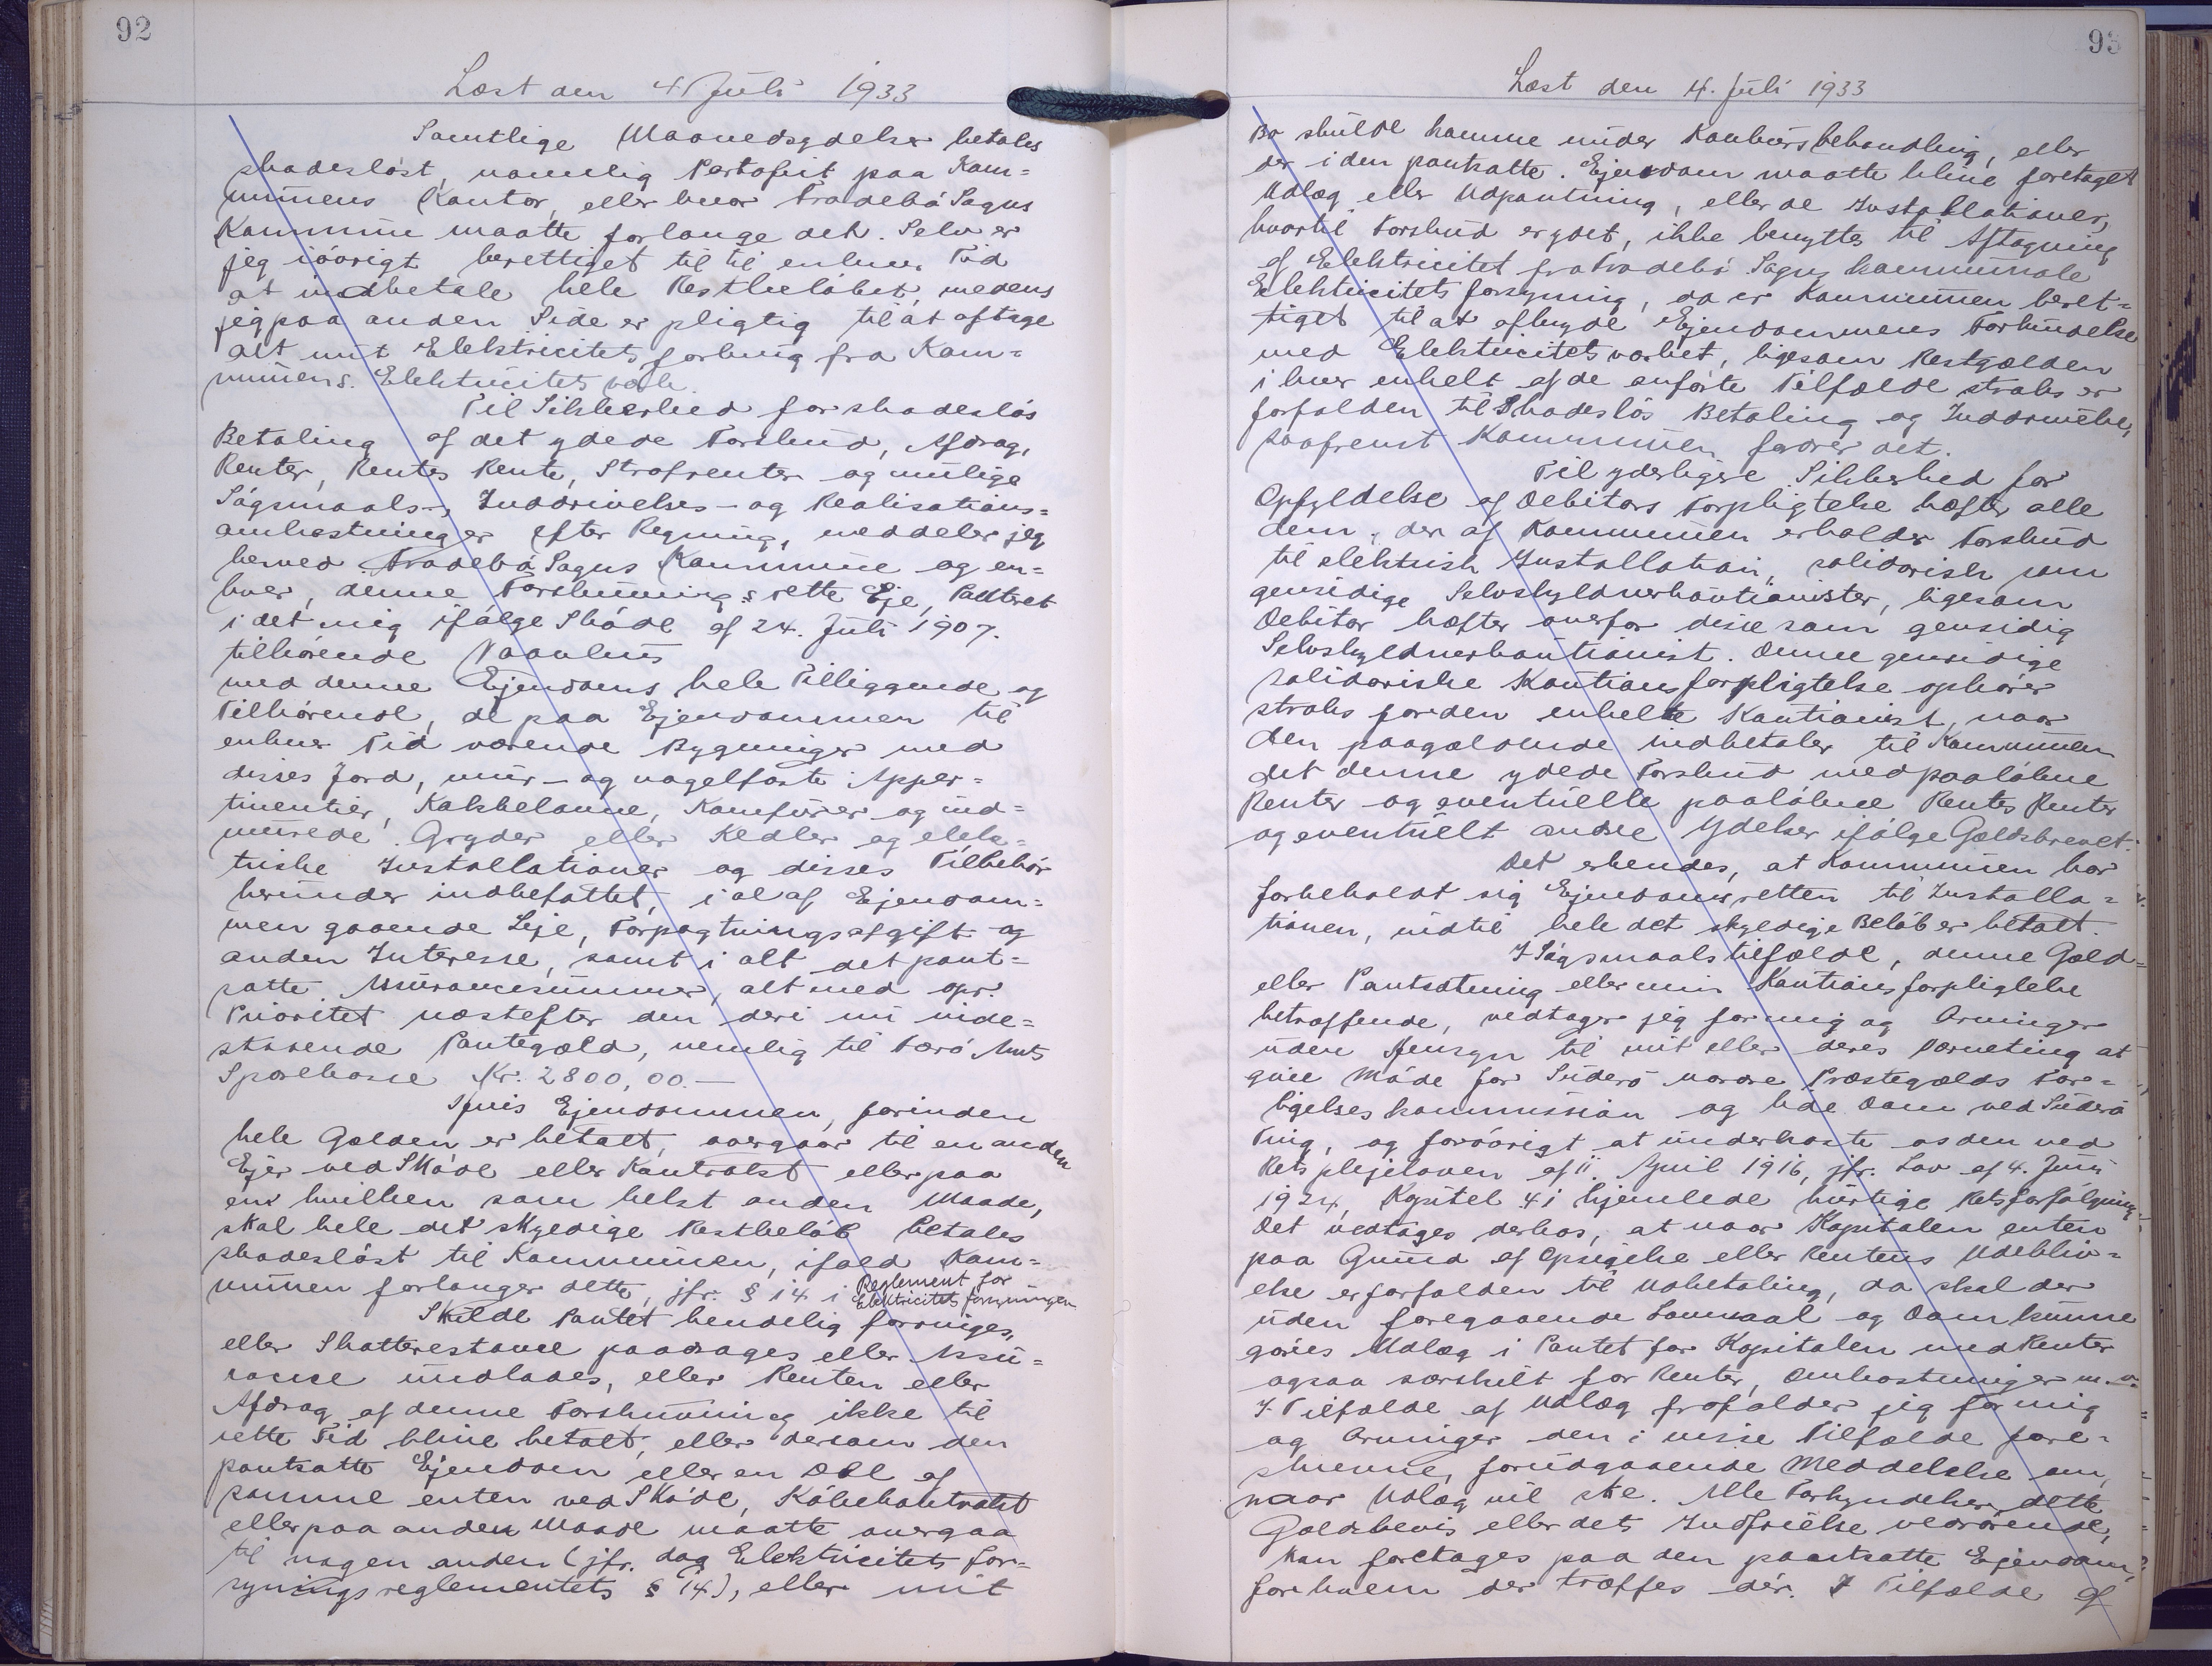 92
Læst den 4 Juli 1933
Samtlige Maanedsydelser betales
skadesløst, nemlig Portofrit paa Kom=
munens Kontor, eller hvor Tradebö Sogns
Kommune maatte forlange det. Selv er
jeg iøvrigt berettiget til til enhver Tid
at indbetale hele Restbeløbet, medens
jeg paa anden Side er pligtig til at aftage
alt mit Elektricitetsforbrug fra Kom=
munens Elektricitetsværk.
Til Sikkerhed for skadesløs
Betaling af det ydede Forskud, Afdrag,
Renter, Rentes Rente, Strafrenter og mulige
Søgsmaals-, Inddrivelses- og Realisations=
omkostninger efter Regning, meddeler jeg
herved Tradebö Sogns Kommune og en=
hver, denne Forskrivnings rette Eje, Panteret
i det mig ifølge Skøde af 24. Juli 1907.
tilhørende Vaanhus
med denne Ejendoms hele Tilliggende og
Tilhørende, de paa Ejendommen til
enhver Tid værende Bygninger med
disses Jord, mur- og nagelfaste Apper=
tinentier, Kakkelovne, Komfurer og ind=
murede Gryder eller Kedler og elek=
triske Installationer og disses Tilbehør
herunder indbefattet, i al af Ejendom=
men gaaende Leje, Forpagtningsafgift og
anden Interesse, samt i alt det pant=
satte Assurancesummer, alt med opr.
Prioritet næstefter den deri nu inde=
staaende Pantegæld, nemlig til Færø Amts
Sparekasse Kr. 2800,00.—
Hvis Ejendommen, forinden
hele Gælden er betalt, overgaar til en anden
Ejer ved Skøde eller Kontrakt eller paa
en hvilken som helst anden Maade,
skal hele det skyldige Restbeløb betales
skadesløst til Kommunen, ifald Kom=
munen forlanger dette, jfr. § 14 i Reglement for
Elektricitetsforsyningen
Skulde Pantet kendelig forringes,
eller Skatterestance paadrages eller Assu=
rance undlades, eller Renten eller
Afdrag af denne Forskrivning ikke til
rette Tid blive betalt, eller dersom den
pantsatte Ejendom eller en Del af
samme enten ved Skøde, Købekontrakt
eller paa anden Maade maatte overgaa
til nogen anden (jfr. dog Elektricitets for=
syningsreglementets § 14), eller mit
93
Læst den 4. Juli 1933
Bo skulde komme under Konkursbehandling, eller
der i den pantsatte Ejendom maatte blive foretaget
Udlæg eller Udpantning, eller de Installationer,
hvortil Forskud er ydet, ikke benyttes til Aftagning
af Elektricitet fra Tradebö Sogns kommunale
Elektricitetsforsyning, da er Kommunen beret=
tiget til at afbryde Ejendommens Forbindelse
med Elektricitetsværket, ligesom Restgælden
i hver enkelt af de anførte Tilfælde straks er
forfalden til Skadesløs Betaling og Inddrivelse,
saafremt Kommunen fordrer det.
Til yderligere Sikkerhed for
Opfyldelse af Debitors Forpligtelse hæfter alle
dem, der af Kommunen erholder Forskud
til elektrisk Installation, solidarisk som
gensidige Selvskyldnerkautionister, ligesom
Debitor hæfter overfor disse som gensidig
Selvskyldnerkautionist. Denne gensidige
solidariske Kautionsforpligtelse ophører
straks for den enkelte Kautionist, naar
den paagældende indbetaler til Kommunen
det denne ydede Forskud med paaløbne
Renter og eventuelle paaløbne Rentes Renter
og eventuelt andre Ydelser ifølge Gældsbrevet.
Det erkendes, at Kommunen har
forbeholdt sig Ejendomsretten til Installa=
tionen, indtil hele det skyldige Beløb er betalt.
I Søgsmaalstilfælde, denne Gæld=
eller Pantsætning eller min Kautionsforpligtelse
betræffende, vedtager jeg for mig og Arvinger
uden Hensyn til mit eller deres Værneting at
give Møde for Suderø nordre Præstegælds For=
ligelseskommission og lide Dom ved Suderø
Ting, og forøvrigt at underkaste os den ved
Retsplejeloven af 11. April 1916, jfr. Lov af 4. Juni
1924, Kapitel 4 i hjemlede hurtige Retsforfølgning.
Det vedtages derhos, at naar Kapitalen enten
paa Grund af Opsigelse eller Rentens Udebliv=
else er forfalden til Udbetaling, da skal der
uden foregaaende Lovmaal og Dom kunne
gøres Udlæg i Pantet for Kapitalen med Renter
ogsaa særskilt for Renter, Omkostninger m.v.
I Tilfælde af Udlæg frafalder jeg for mig
og Arvinger den i visse Tilfælde fore=
skrevne, forudgaaende Meddelelse om,
naar Udlæg vil ske. Alle Forkyndelser, dette
Gældsbevis eller dets Indfrielse vedrørende,
kan foretages paa den pantsatte Ejendom,
for hvem der træffes dér. I Tilfælde af